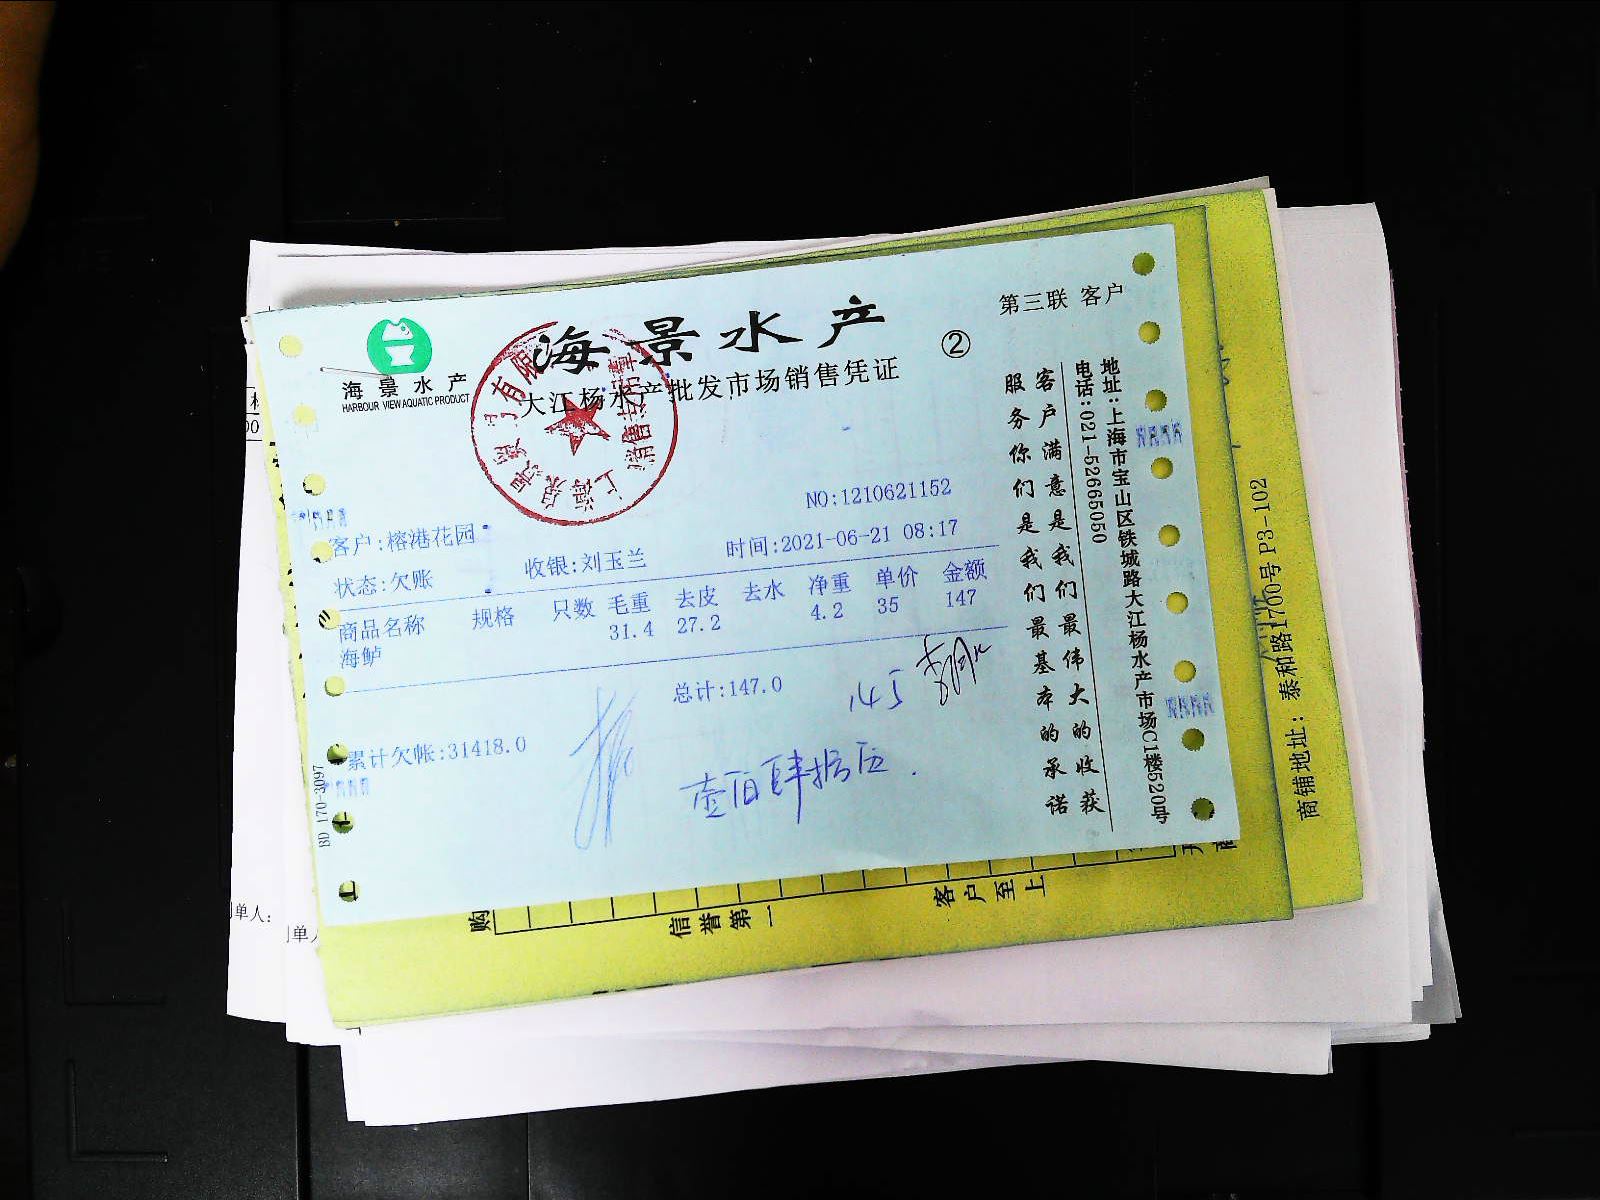 海景水产
HARBOUR VIEW AQUATIC PRODUCT
海景水产
大江杨水产批发市场销售凭证
②
第三联 客户
NO:1210621152
客户:榕港花园
时间:2021-06-21 08:17
状态:欠账
收银:刘玉兰
商品名称 规格 只数 毛重 去皮 去水 净重 单价 金额
海鲈 31.4 27.2 4.2 35 147
总计:147.0
145
累计欠帐:31418.0
壹佰肆拾伍.
BD 170-3097
客户满意是我们最伟大的收获
服务你们是我们最基本的承诺
地址:上海市宝山区铁城路大江杨水产市场C1楼520号
电话:021-52665050
商铺地址:泰和路1700号 P3-102
信誉第一
客户至上
购
单人:
单人